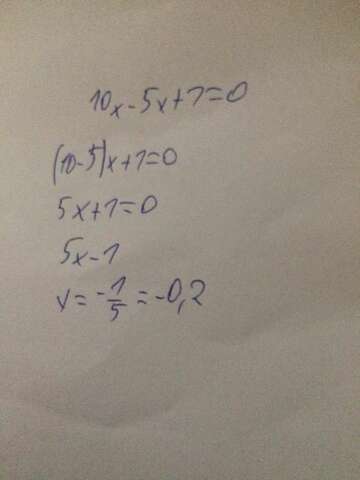 10x-5x+1=0
(10-5)x+1=0
5x+1=0
5x-1
x=-1/5=-0,2